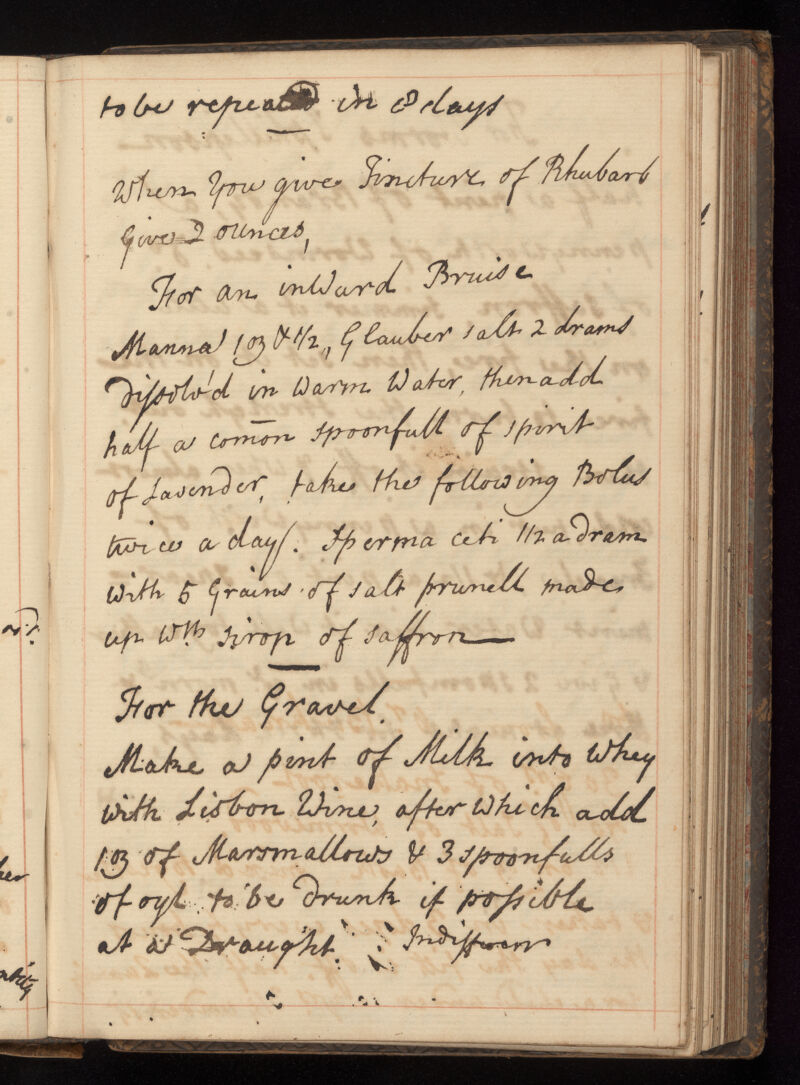 to be repeated in 8 days
When You give Tincture of Rhubarb
Give 2 ounces,
For an inWard Bruise
Manna 1 oz & 1/2, Glauber salt 2 drams
Dissolv'd in Warm Water, then add
half a comon spoonfull of spirit
of Lavender, take the following Bolus
twice a day. Sperma ceti 1/2 a Dram
With 5 Grains of salt prunell made
up Wth sirop of saffron
For the Gravel.
Make a pint of Milk into Whey
With Lisbon Wine, after Which add
1 oz of Marsmallows & 3 spoonfulls
of oyl to be Drunk if possible
at a Draught.